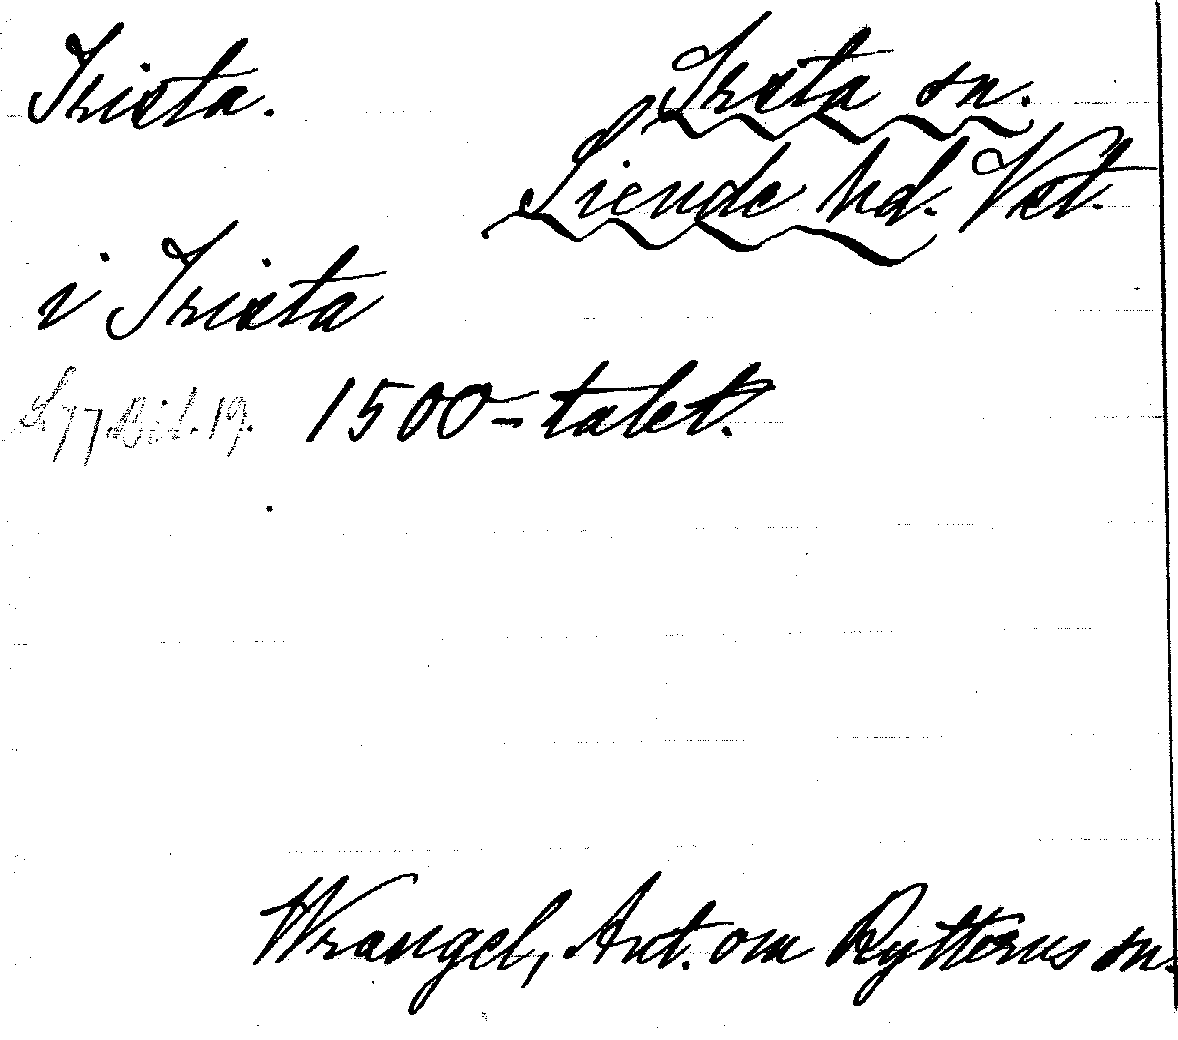 Irista.
Irsta sn.
Siende hd. Vst.
i Irista
L 77 Bil. 19. 1500-talet.
Wrangel, Ant. om Rytterns sn.